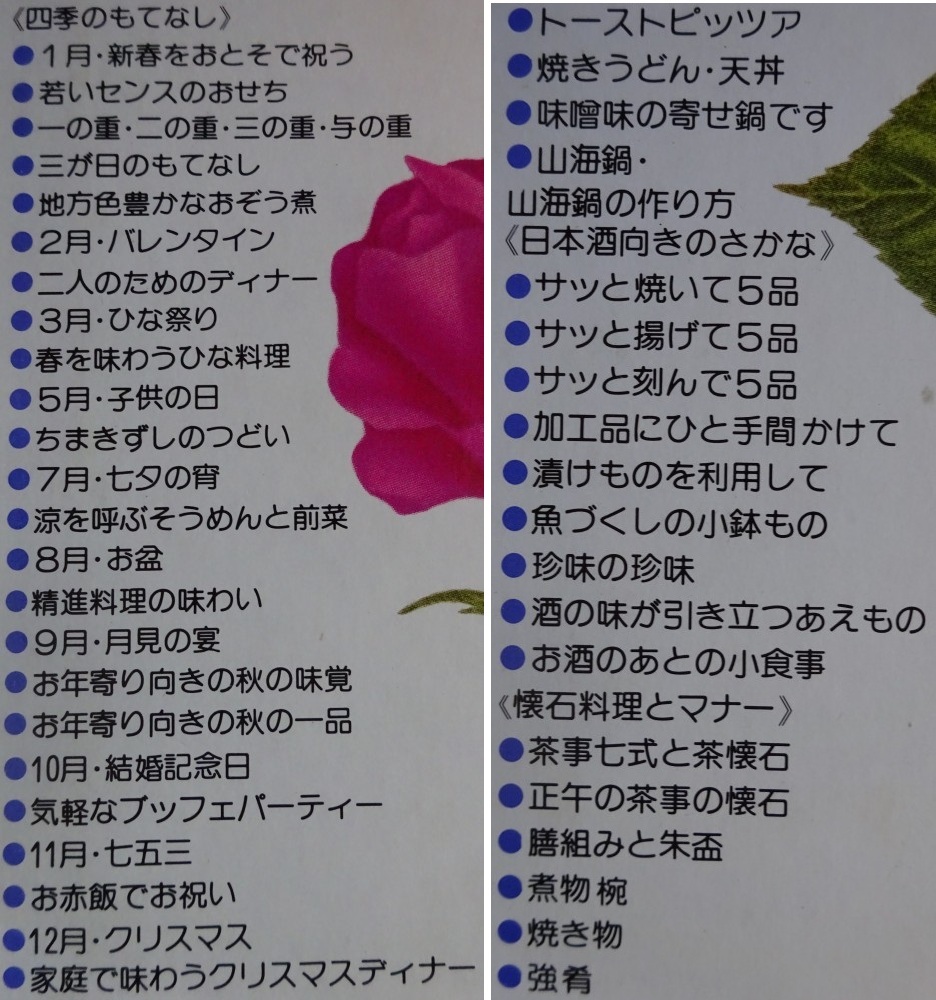 《四季のもてなし》
●1月·新春をおとそで祝う
●若いセンスのおせち
●一の重·二の重·三の重·与の重
●三が日のもてなし
●地方色豊かなおぞう煮
●2月·バレンタイン
●二人のためのディナー
●3月·ひな祭り
●春を味わうひな料理
●5月·子供の日
●ちまきずしのつどい
●7月·七夕の宵
●涼を呼ぶそうめんと前菜
●8月·お盆
●精進料理の味わい
●9月·月見の宴
●お年寄り向きの秋の味覚
●お年寄り向きの秋の一品
●10月·結婚記念日
●気軽なブッフェパーティー
●11月·七五三
●お赤飯でお祝い
●12月·クリスマス
●家庭で味わうクリスマスディナー
●トーストピッツア
●焼きうどん·天丼
●味噌味の寄せ鍋です
●山海鍋·
山海鍋の作り方
《日本酒向きのさかな》
●サッと焼いて5品
●サッと揚げて5品
●サッと刻んで5品
●加工品にひと手間かけて
●漬けものを利用して
●魚づくしの小鉢もの
●珍味の珍味
●酒の味が引き立つあえもの
●お酒のあとの小食事
《懐石料理とマナー》
●茶事七式と茶懐石
●正午の茶事の懐石
●膳組みと朱盃
●煮物椀
●焼き物
●強肴